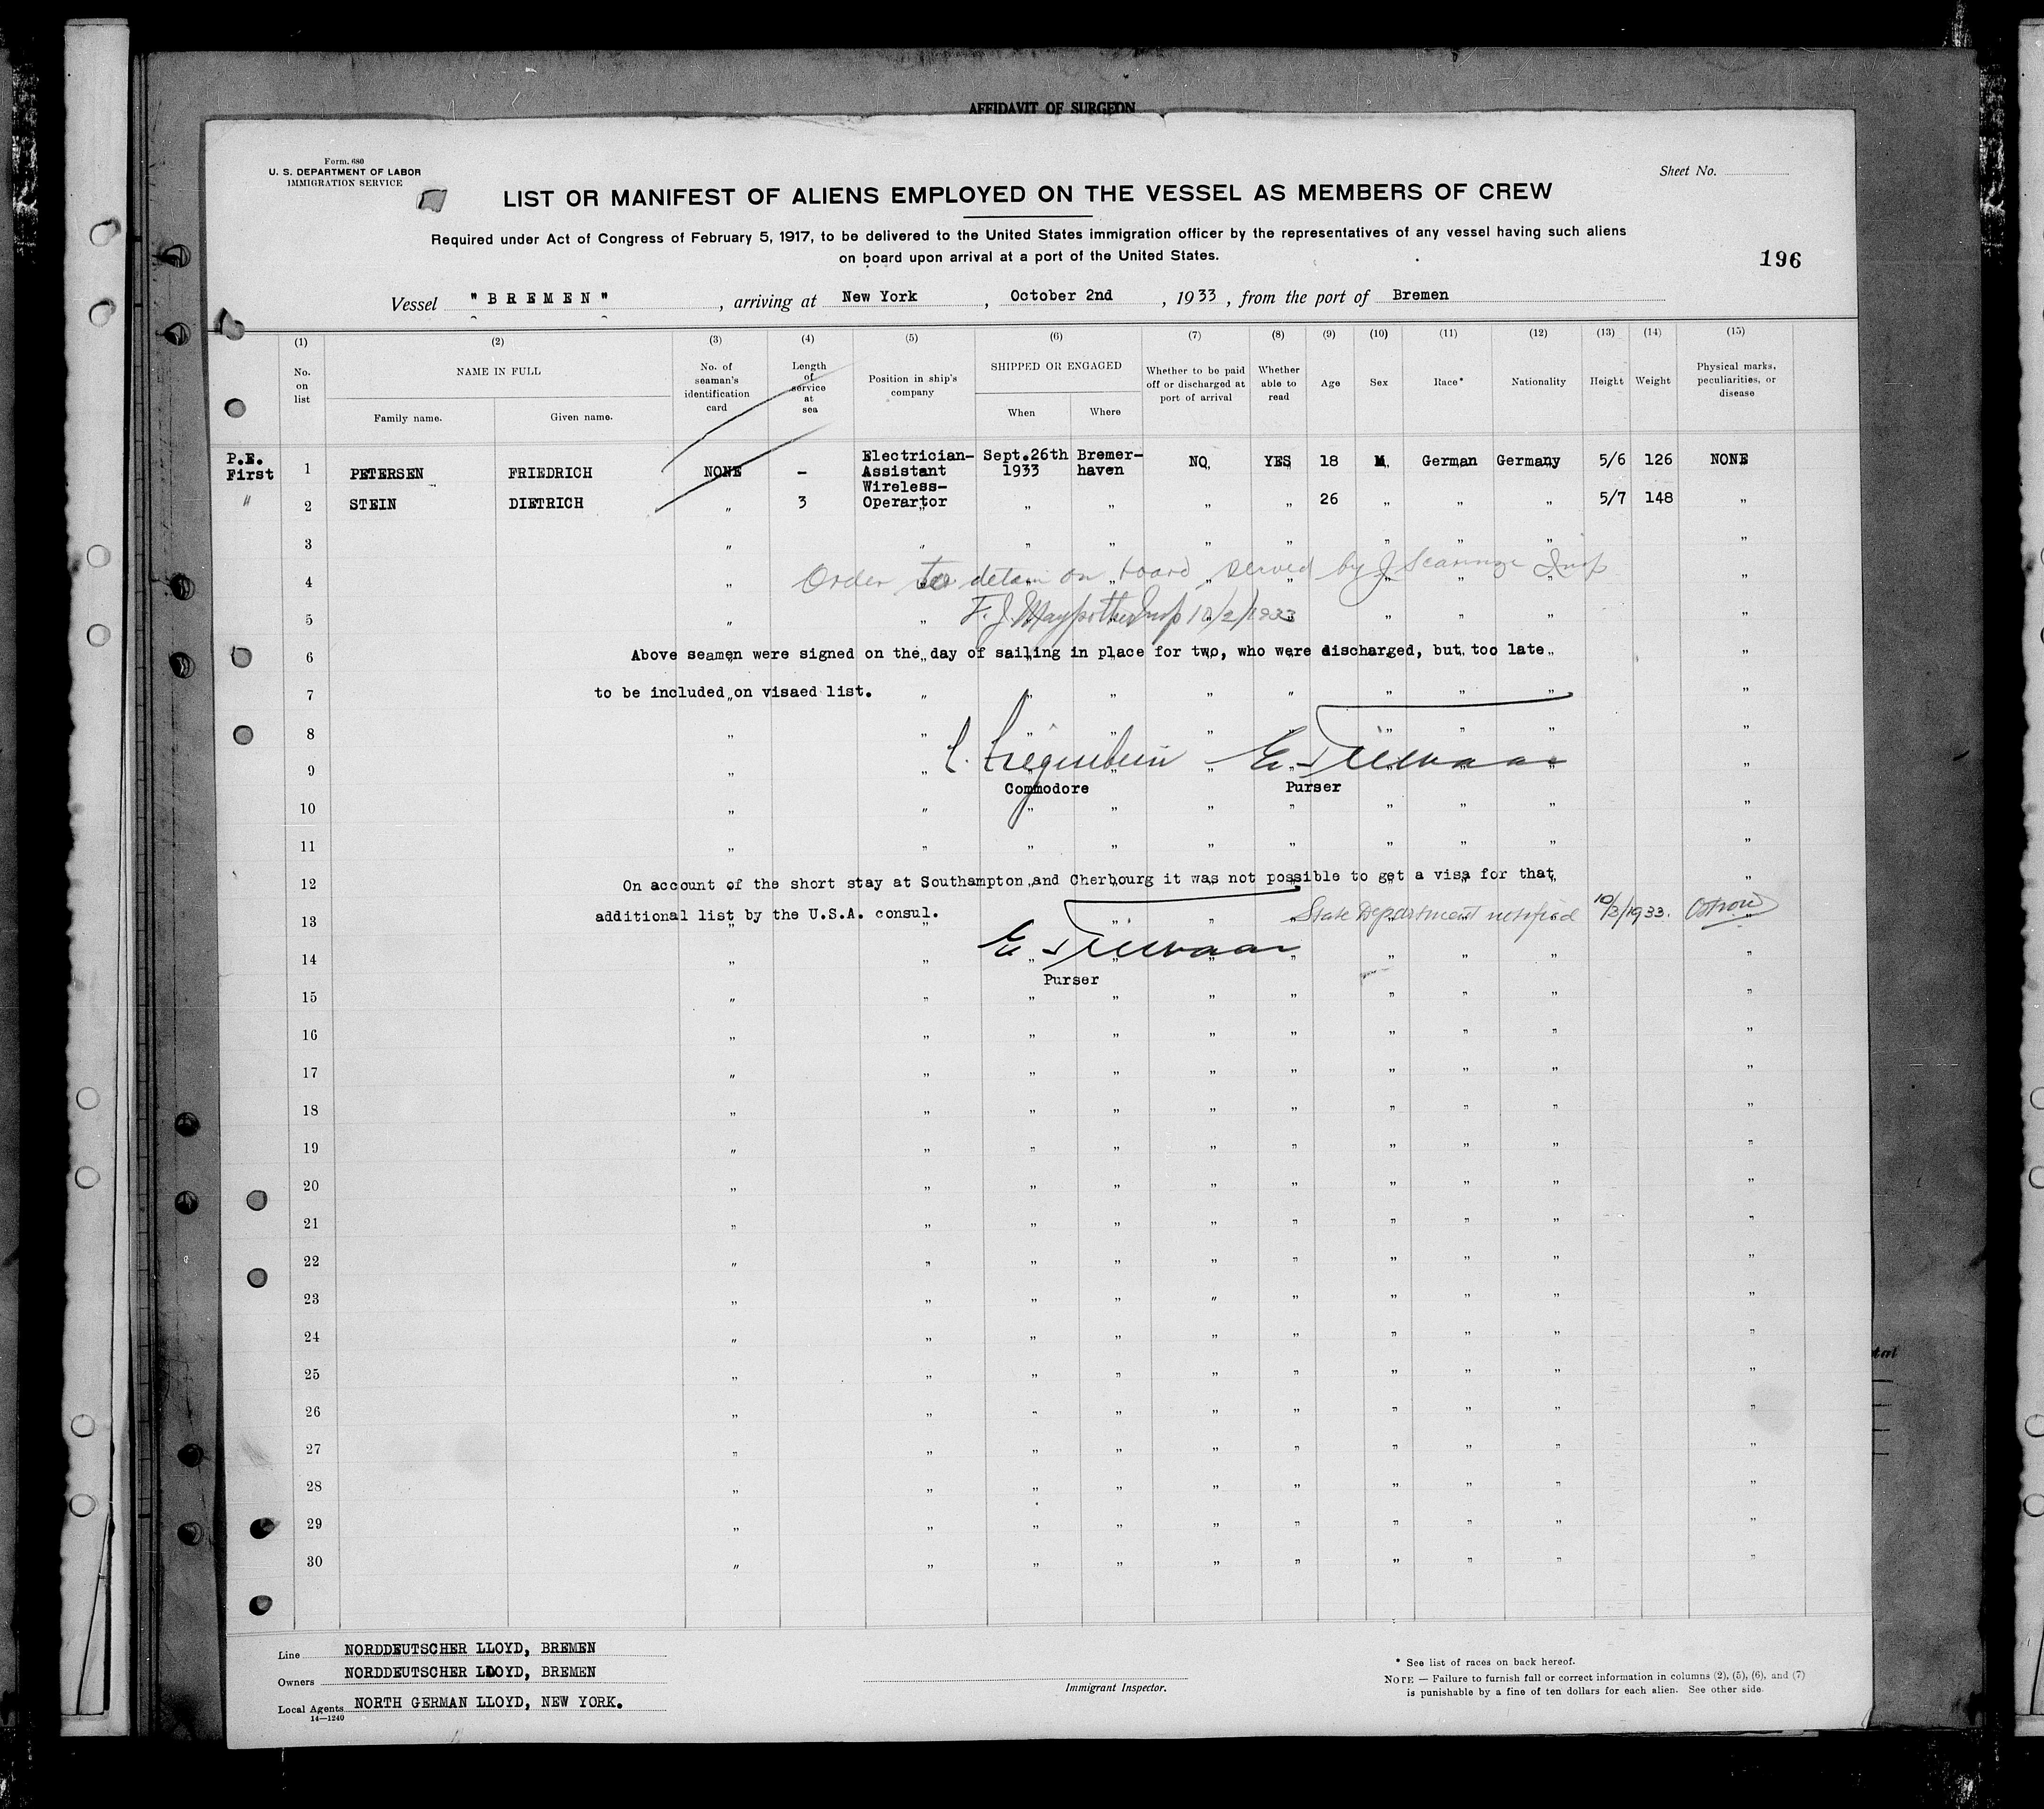 AFFIDAVIT OF SURGEON
Form. 680
U. S. DEPARTMENT OF LABOR
IMMIGRATION SERVICE
Sheet No.
LIST OR MANIFEST OF ALIENS EMPLOYED ON THE VESSEL AS MEMBERS OF CREW
Required under Act of Congress of February 5, 1917, to be delivered to the United States immigration officer by the representatives of any vessel having such aliens
on board upon arrival at a port of the United States.
196
Vessel "BREMEN", arriving at New York, October 2nd, 1933, from the port of Bremen
(1) (2) (3) (4) (5) (6) (7) (8) (9) (10) (11) (12) (13) (14) (15)
No. on list
NAME IN FULL
Family name. Given name.
No. of seaman's identification card
Length of service at sea
Position in ship's company
SHIPPED OR ENGAGED
When Where
Whether to be paid off or discharged at port of arrival
Whether able to read
Age
Sex
Race*
Nationality
Height
Weight
Physical marks, peculiarities, or disease
P.E. First 1 PETERSEN FRIEDRICH NONE - Electrician-Assistant Sept.26th 1933 Bremer-haven NO YES 18 M German Germany 5/6 126 NONE
" 2 STEIN DIETRICH " 3 Wireless-Operartor " " " " 26 " " " 5/7 148 "
3 " " " " " " " " " "
4 " " " " " " " " " "
Order to detain on board served by J Insp
5 " " " " " " " " " "
F. J. Insp 10/2/1933
6 " " " " " " " " " "
Above seamen were signed on the day of sailing in place for two, who were discharged, but too late
7 " " " " " " " " " "
to be included on visaed list.
8 " " " " " " " " " "
9 " " " " " " " " " "
Commodore Purser
10 " " " " " " " " " "
11 " " " " " " " " " "
12 " " " " " " " " " "
On account of the short stay at Southampton and Cherbourg it was not possible to get a visa for that
13 " " " " " " " " " "
additional list by the U.S.A. consul.
State Department notified 10/3/1933.
14 " " " " " " " " " "
Purser
15 " " " " " " " " " "
16 " " " " " " " " " "
17 " " " " " " " " " "
18 " " " " " " " " " "
19 " " " " " " " " " "
20 " " " " " " " " " "
21 " " " " " " " " " "
22 " " " " " " " " " "
23 " " " " " " " " " "
24 " " " " " " " " " "
25 " " " " " " " " " "
26 " " " " " " " " " "
27 " " " " " " " " " "
28 " " " " " " " " " "
29 " " " " " " " " " "
30 " " " " " " " " " "
Line NORDDEUTSCHER LLOYD, BREMEN
Owners NORDDEUTSCHER LLOYD, BREMEN
Local Agents NORTH GERMAN LLOYD, NEW YORK.
14—1240
Immigrant Inspector.
* See list of races on back hereof.
NOTE — Failure to furnish full or correct information in columns (2), (5), (6), and (7)
is punishable by a fine of ten dollars for each alien. See other side.